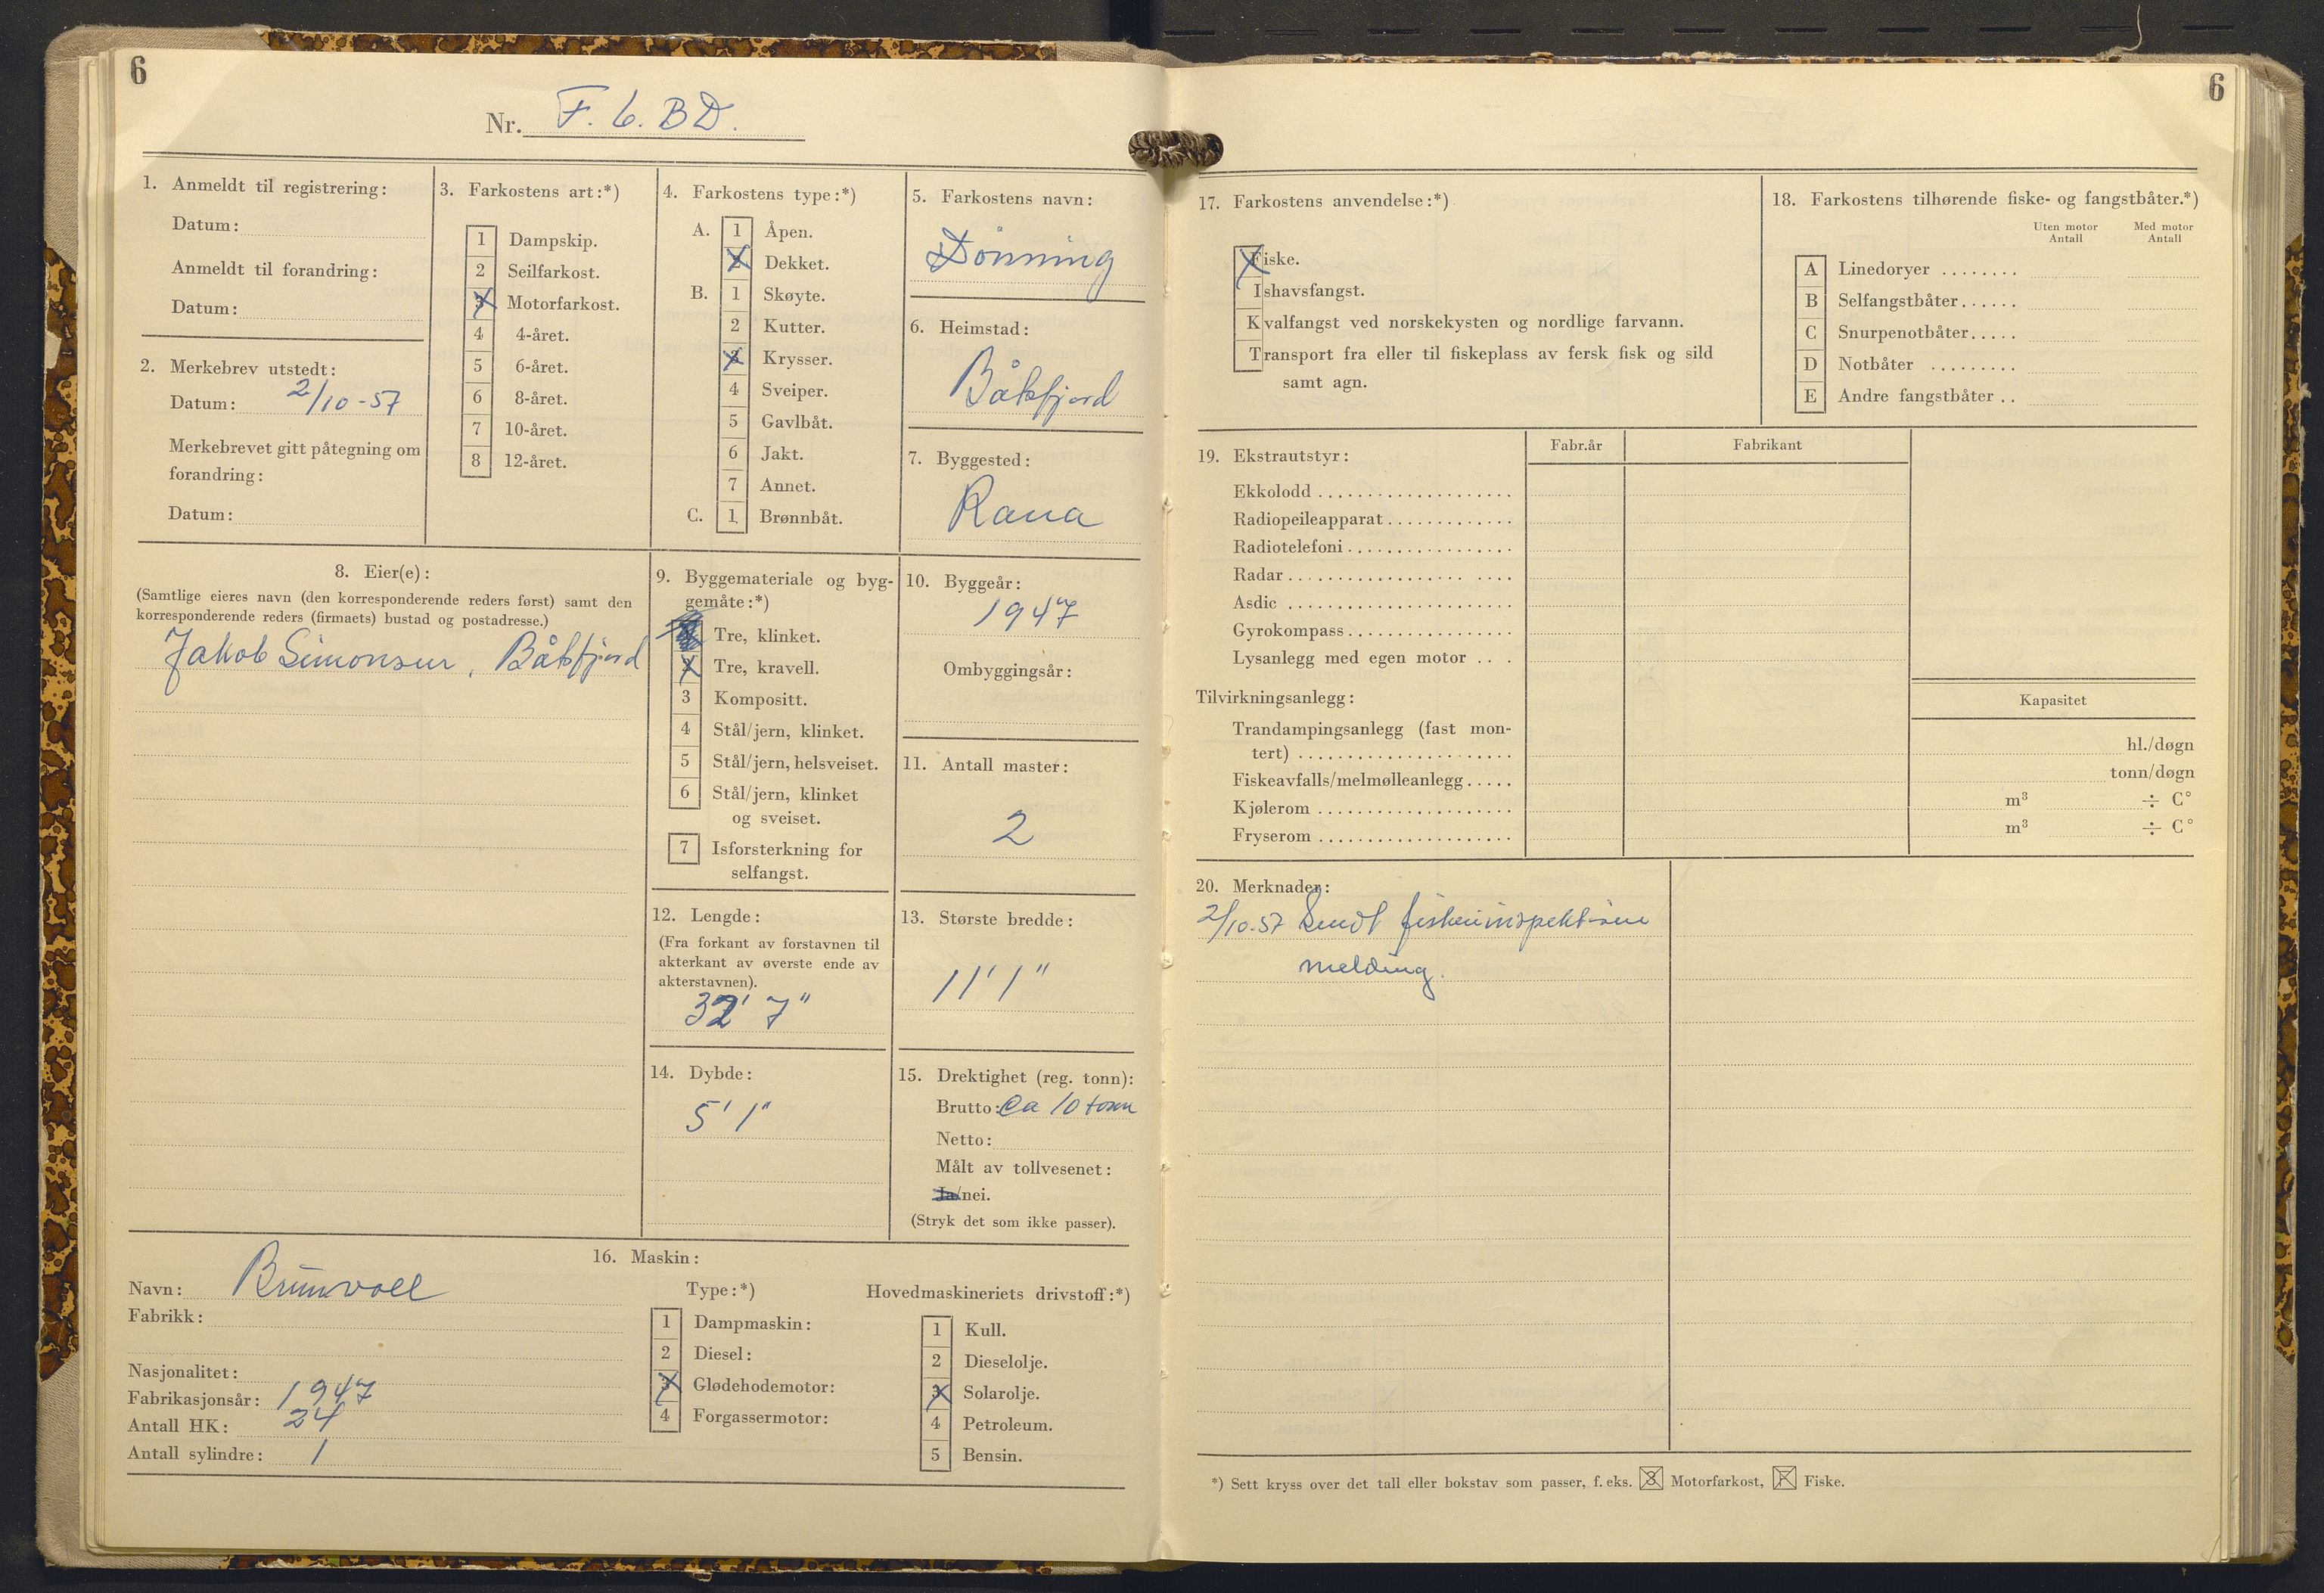 6
Nr. F. 6. BD.
1. Anmeldt til registrering:
Datum:
Anmeldt til forandring:
Datum:
2. Merkebrev utstedt:
Datum: 2/10-57
Merkebrevet gitt påtegning om
forandring:
Datum:
3. Farkostens art:*)
1 Dampskip.
2 Seilfarkost.
3 Motorfarkost.
4 4-året.
5 6-året.
6 8-året.
7 10-året.
8 12-året.
4. Farkostens type:*)
A. 1 Åpen.
2 Dekket.
B. 1 Skøyte.
2 Kutter.
3 Krysser.
4 Sveiper.
5 Gavlbåt.
6 Jakt.
7 Annet.
C. 1 Brønnbåt.
5. Farkostens navn:
Dønning
6. Heimstad:
Båtsfjord
7. Byggested:
Rana
8. Eier(e):
(Samtlige eieres navn (den korresponderende reders først) samt den
korresponderende reders (firmaets) bustad og postadresse.)
Jakob Simonsen, Båtsfjord
9. Byggemateriale og byg-
gemåte:*)
1 Tre, klinket.
2 Tre, kravell.
3 Kompositt.
4 Stål/jern, klinket.
5 Stål/jern, helsveiset.
6 Stål/jern, klinket
og sveiset.
7 Isforsterkning for
selfangst.
10. Byggeår:
1947
Ombyggingsår:
11. Antall master:
2
12. Lengde:
(Fra forkant av forstavnen til
akterkant av øverste ende av
akterstavnen).
32' 7"
13. Største bredde:
11' 1"
14. Dybde:
5' 1"
15. Drektighet (reg. tonn):
Brutto: Ca 10 tonn
Netto:
Målt av tollvesenet:
Ja/nei.
(Stryk det som ikke passer).
16. Maskin:
Navn: Brunvoll
Fabrikk:
Nasjonalitet:
Fabrikasjonsår: 1947
Antall HK: 24
Antall sylindre: 1
Type:*)
1 Dampmaskin:
2 Diesel:
3 Glødehodemotor:
4 Forgassermotor:
Hovedmaskineriets drivstoff:*)
1 Kull.
2 Dieselolje.
3 Solarolje.
4 Petroleum.
5 Bensin.
6
17. Farkostens anvendelse:*)
Fiske.
Ishavsfangst.
Kvalfangst ved norskekysten og nordlige farvann.
Transport fra eller til fiskeplass av fersk fisk og sild
samt agn.
18. Farkostens tilhørende fiske- og fangstbåter.*)
Uten motor Med motor
Antall Antall
A Linedoryer ........
B Selfangstbåter......
C Snurpenotbåter.....
D Notbåter .........
E Andre fangstbåter ..
19. Ekstrautstyr: Fabr.år Fabrikant
Ekkolodd ....................
Radiopeileapparat.............
Radiotelefoni.................
Radar.......................
Asdic .......................
Gyrokompass.................
Lysanlegg med egen motor ...
Tilvirkningsanlegg: Kapasitet
Trandampingsanlegg (fast mon-
tert) ...................... hl./døgn
Fiskeavfalls/melmølleanlegg..... tonn/døgn
Kjølerom .................... m³ ÷ C°
Fryserom .................... m³ ÷ C°
20. Merknader:
2/10-57 Sendt fiskeriinspektøren
melding.
*) Sett kryss over det tall eller bokstav som passer, f. eks. 3 Motorfarkost, F Fiske.